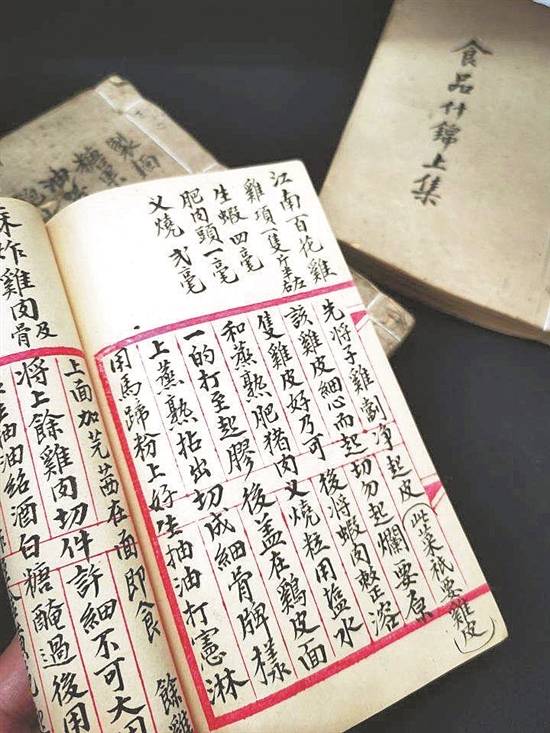 食品什錦上集
糖菓
油
江南百花雞
雞項一隻
生蝦四毫
肥肉頭一毫
叉燒弍毫
先將子雞劏净起皮(此菜祇要雞皮)
該雞皮細心而起切勿起爛要原
隻雞皮好乃可後將蝦肉整溶
和蒸熟肥猪肉叉燒粒用塩水
一的打至起膠後盖在鷄皮面
上蒸熟拈出切成細骨牌樣
用馬蹄粉上好生抽油打憲淋
上面加芫茜在面即食 餘雞
炸雞肉及骨
將上餘雞肉切件許細不可大用
抽油紹酒白糖醃過後用